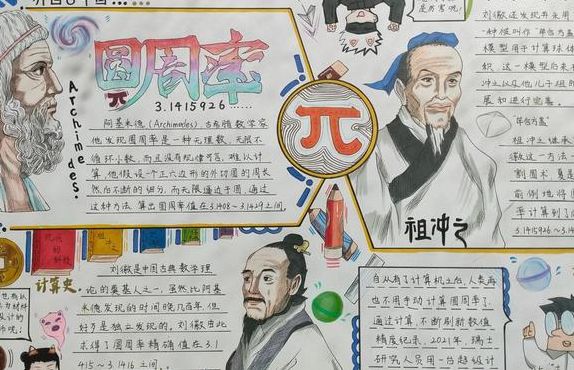 圆周率
π
3.1415926......
Archimedes.
阿基米德(Archimedes)古希腊数学家
他发现圆周率是一种无理数,无限不
循环小数,而且没有规律可言,难以计
算,他假设一个正六边形的外切圆的周长
然后不断的细分,而无限逼近于圆,通过
这种方法算出圆周率值在3.1408~3.1429之间.
π
祖冲之
刘徽还发现并采用
一种被叫作"牟合方盖
模型用于计算球体
织,这一模型后来
冲之以及他儿子祖
展和进行完善.
"牟合方盖"
祖冲之继承
徽这一方法
割圆术算
前例地将圆
率计算到了
3.1415926~3.1415
计算史
刘徽是中国古典数学理
论的奠基人之一,虽然比阿基
米德发现的时间晚几百年,但
好歹是独立发现的,刘徽由此
求得了圆周率精确值在3.1
415~3.1416之间.
自从有了计算机之后,人类再
也不用手动计算圆周率了.
通过计算,不断刷新数值
精度纪录,2021年,瑞士
研究人员用一台超级计